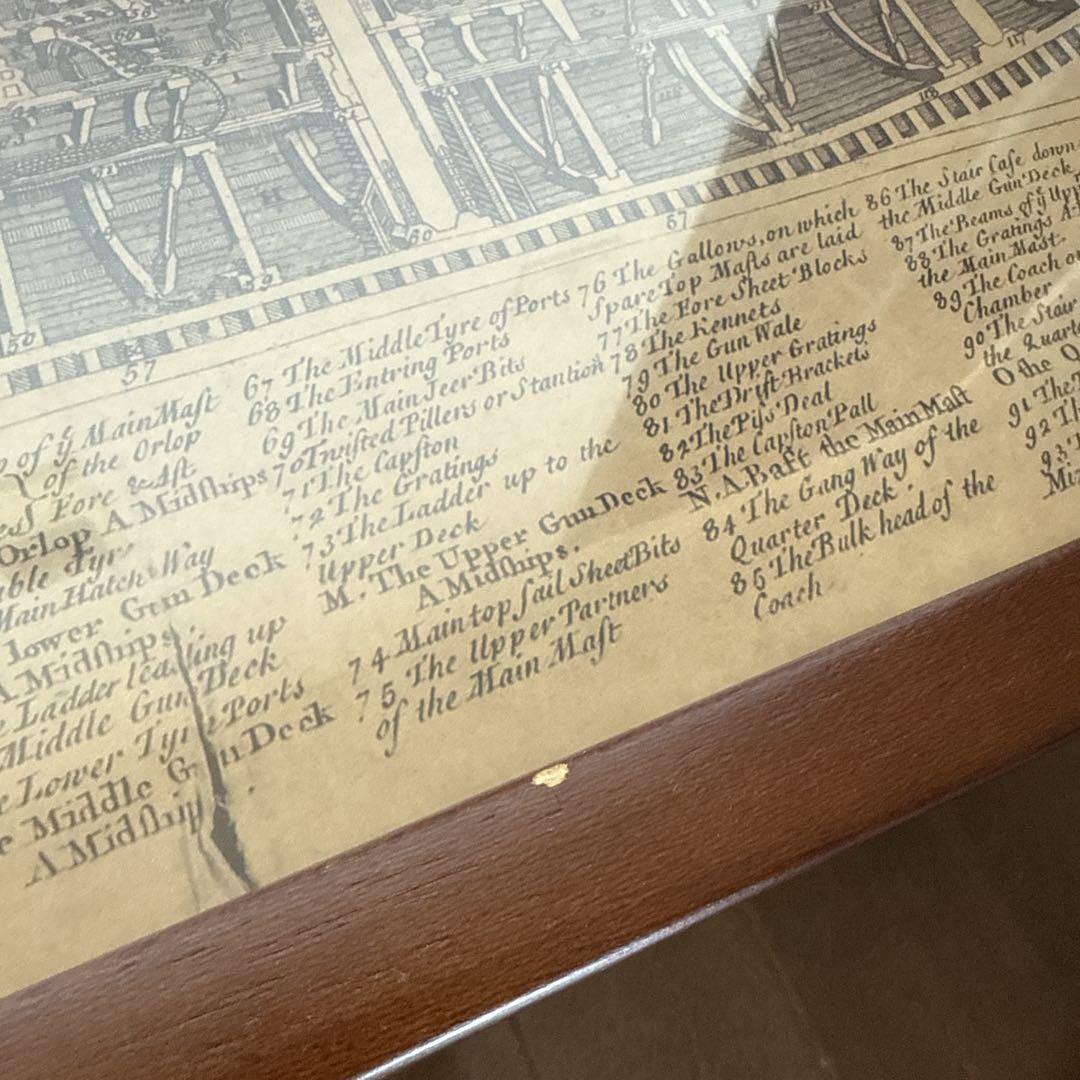 50
57
60
67
118
117
of yͤ Main Maſt
of the Orlop
Fore & Aft
A Midſhips
Orlop
Main Hatch Way
Lower Gun Deck
A Midſhips
Ladder leading up
Middle Gun Deck
Lower Tyre Ports
Middle Gun Deck
A Midſhip
67 The Middle Tyre of Ports
68 The Entring Ports
69 The Main Jeer Bits
70 Twiſted Pillers or Stantion
71 The Capſton
72 The Gratings
73 The Ladder up to the
Upper Deck
M. The Upper Gun Deck
A Midſhips.
74 Main top ſail Sheet Bits
75 The Upper Partners
of the Main Maſt
76 The Gallows, on which
Spare Top Maſts are laid
77 The Fore Sheet Blocks
78 The Kennets
79 The Gun Wale
80 The Upper Gratings
81 The Drift Brackets
82 The Piſs Deal
83 The Capſton Pall
N. A Baft the Main Maſt
84 The Gang Way of the
Quarter Deck.
85 The Bulk head of the
Coach
86 The Stair Caſe down
the Middle Gun Deck
87 The Beams of yͤ Upp
88 The Gratings A
the Main Mast
89 The Coach o
Chamber
90 The Stair
the Quarte
O the Q
91 The
92 Th
93
Miz